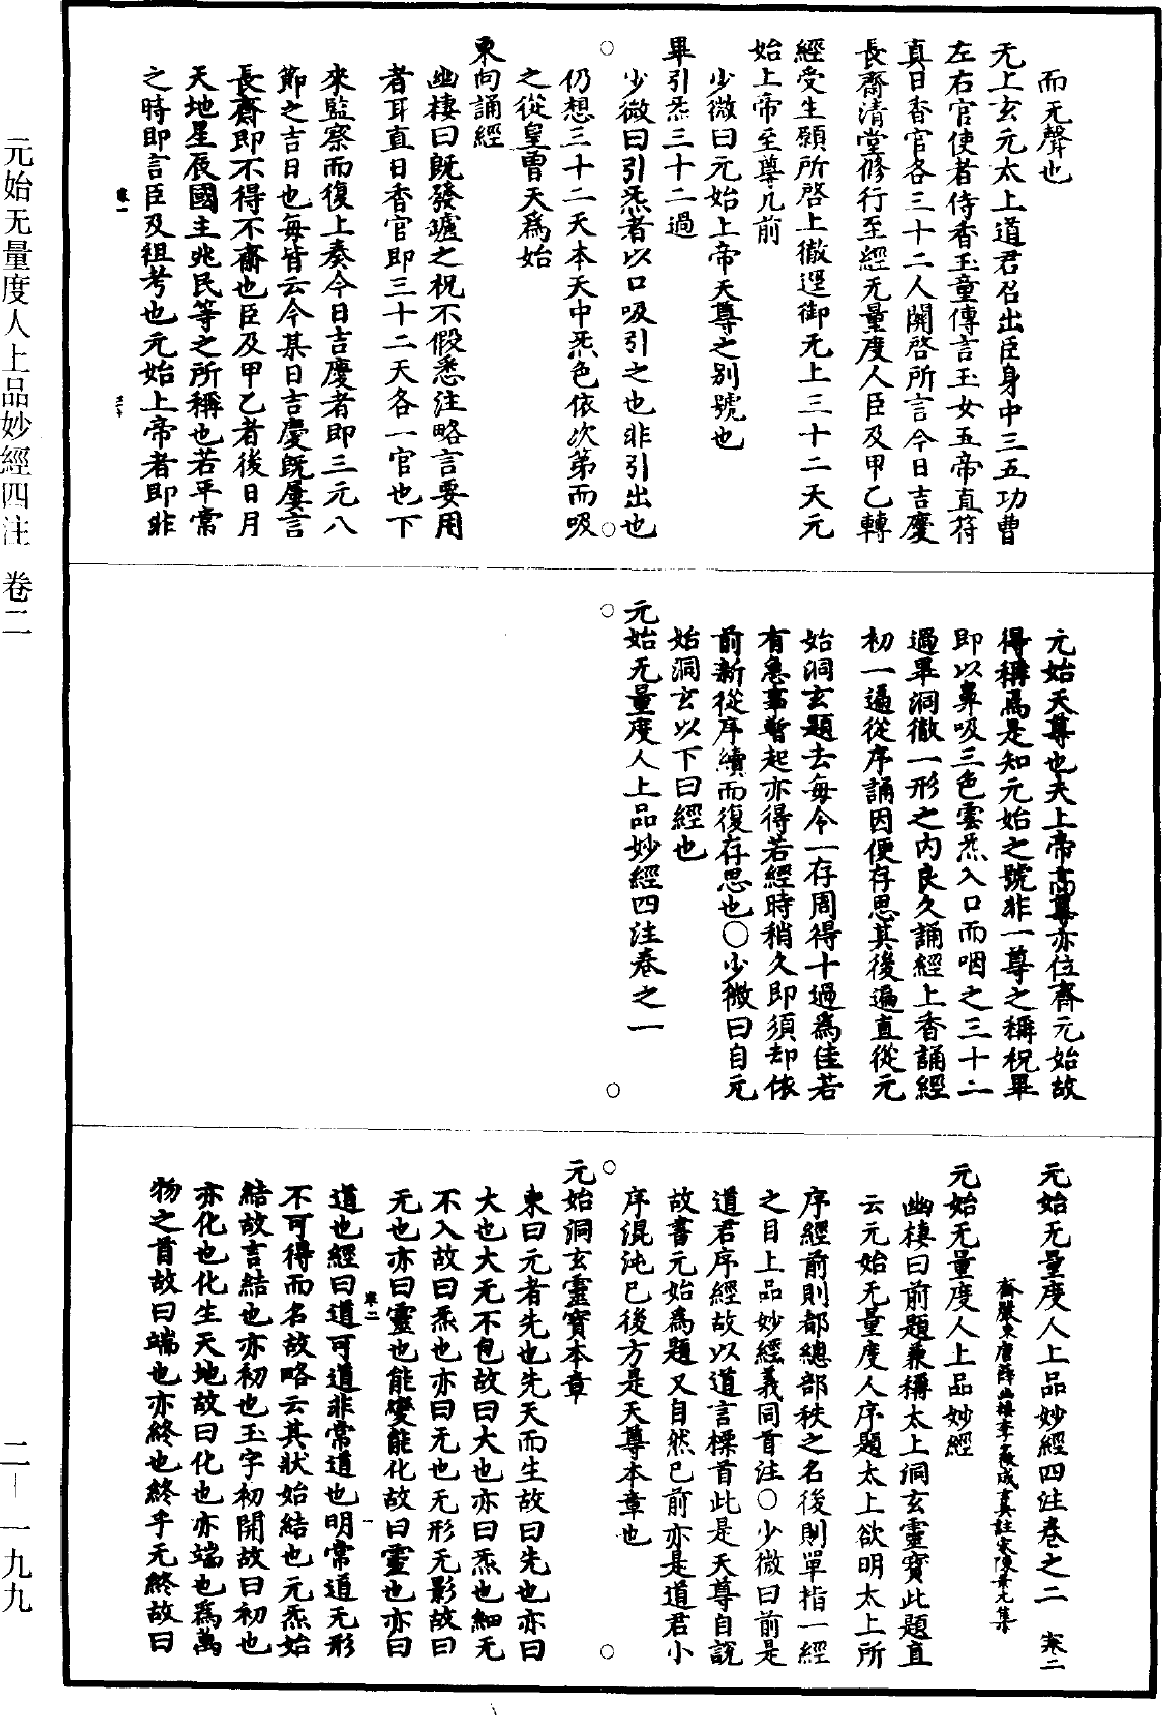 而无聲也
无上玄元太上道君召出臣身中三五功曹
左右官使者侍香玉童傳言玉女五帝直符
真日香官各三十二人關啓所言今日吉慶
長齋清堂修行至經无量度人臣及甲乙轉
經受生願所啓上徹逕御无上三十二天元
始上帝至尊几前
少微曰元始上帝天尊之别號也
畢引炁三十二過
少微曰引炁者以口吸引之也非引出也
仍想三十二天本天中炁色依次第而吸
之從皇曾天爲始
東向誦經
幽棲曰既發爐之祝不假悉注略言要用
者耳直日香官即三十二天各一官也下
來監察而復上奏今日吉慶者即三元八
節之吉日也每皆云今某日吉慶既屢言
長齋即不得不齋也臣及甲乙者後日月
天地星辰國主兆民等之所稱也若平常
之時即言臣及祖考也元始上帝者即非
元始天尊也夫上帝高尊亦位齊元始故
得稱焉是知元始之號非一尊之稱祝畢
即以鼻吸三色雲炁入口而咽之三十二
過畢洞徹一形之内良久誦經上香誦經
初一遍從序誦因便存思其後遍直從元
始洞玄題去每令一存周得十過爲佳若
有急事暫起亦得若經時稍久即須却依
前新從序續而復存思也○少微曰自元
始洞玄以下曰經也
元始无量度人上品妙經四注卷之一
元始无量度人上品妙經四注卷之二 寒二
齊嚴東唐薛幽棲李少微成玄英註宋陳景元集
元始无量度人上品妙經
幽棲曰前題兼稱太上洞玄靈寶此題直
云元始无量度人序題太上欲明太上所
序經前則都總部秩之名後則單指一經
之目上品妙經義同首注○少微曰前是
道君序經故以道言標首此是天尊自說
故書元始爲題又自然已前亦是道君小
序混沌已後方是天尊本章也
元始洞玄靈寶本章
東曰元者先也先天而生故曰先也亦曰
大也大无不包故曰大也亦曰炁也細无
不入故曰炁也亦曰无也无形无影故曰
无也亦曰靈也能變能化故曰靈也亦曰
道也經曰道可道非常道也明常道无形
不可得而名故略云其狀始結也元炁始
結故言結也亦初也玉字初開故曰初也
亦化也化生天地故曰化也亦端也爲萬
物之首故曰端也亦終也終乎无終故曰
元始无量度人上品妙經四注 卷二
二—一九九